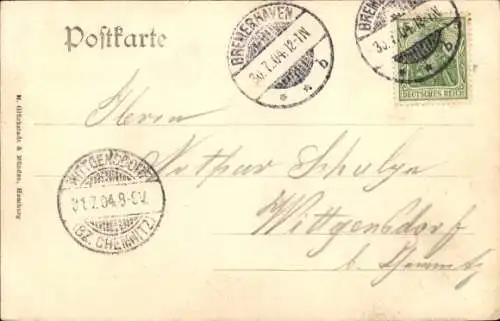 Postkarte
BREMERHAVEN
30.7.04.12-1N
b
BREMERHAVEN
30.7.04.12-1N
b
DEUTSCHES REICH
M. Glückstadt & Münden, Hamburg
Herrn
Lothar Schulze
Wittgensdorf
b. Chemnitz
WITTGENSDORF
31.7.04.8-9V.
(BZ. CHEMNITZ)